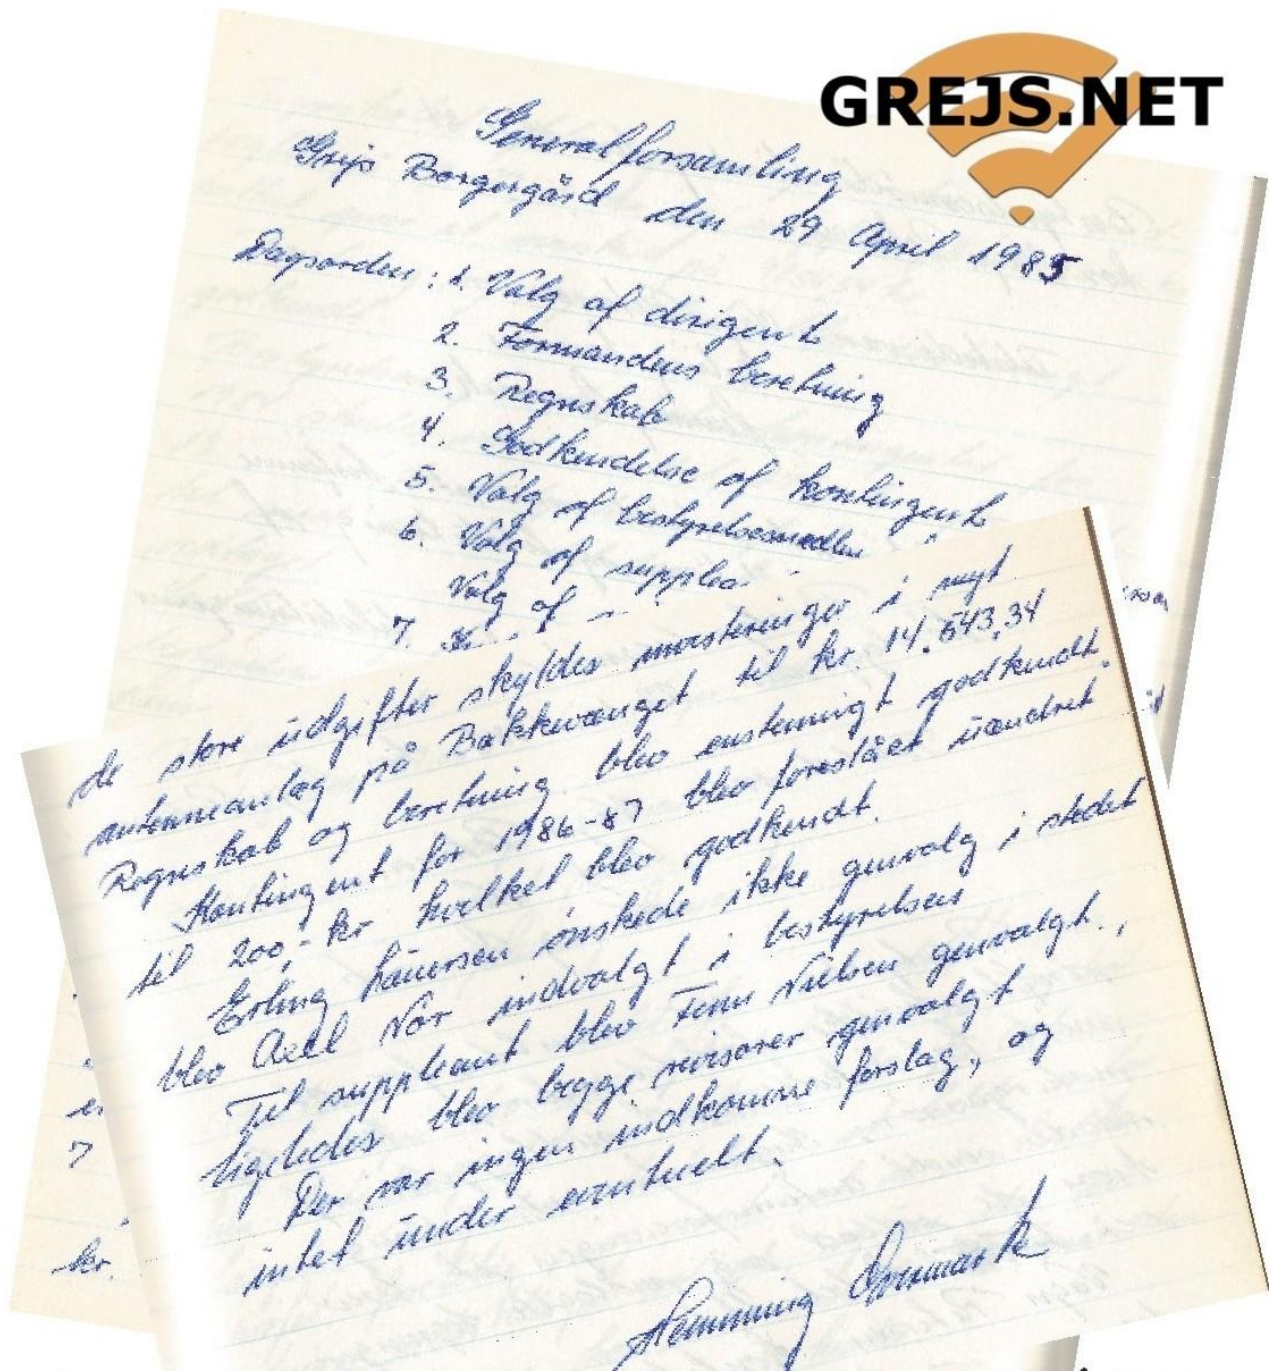 GREJS.NET
Generalforsamling
Grejs Borgergård den 29 April 1985
Dagsorden: 1. Valg af dirigent
2. Formandens beretning
3. Regnskab
4. Godkendelse af kontingent
5. Valg af bestyrelsesmedlem
6. Valg af supplea
Valg af
7.
de store udgifter skyldes investeringer i nyt
antenneanlæg på Bakkevænget til kr. 14.543,34
Regnskab og beretning blev enstemmigt godkendt.
Kontingent for 1986-87 blev foreslået uændret
til 200,- kr hvilket blev godkendt.
Erling Lauersen ønskede ikke genvalg i stedet
blev Axel Nor indvalgt i bestyrelsen
Til suppleant blev Finn Nielsen genvalgt.,
ligeledes blev begge revisorer genvalgt
Der var ingen indkomne forslag, og
intet under eventuelt.
Hemming
er
7
kr.